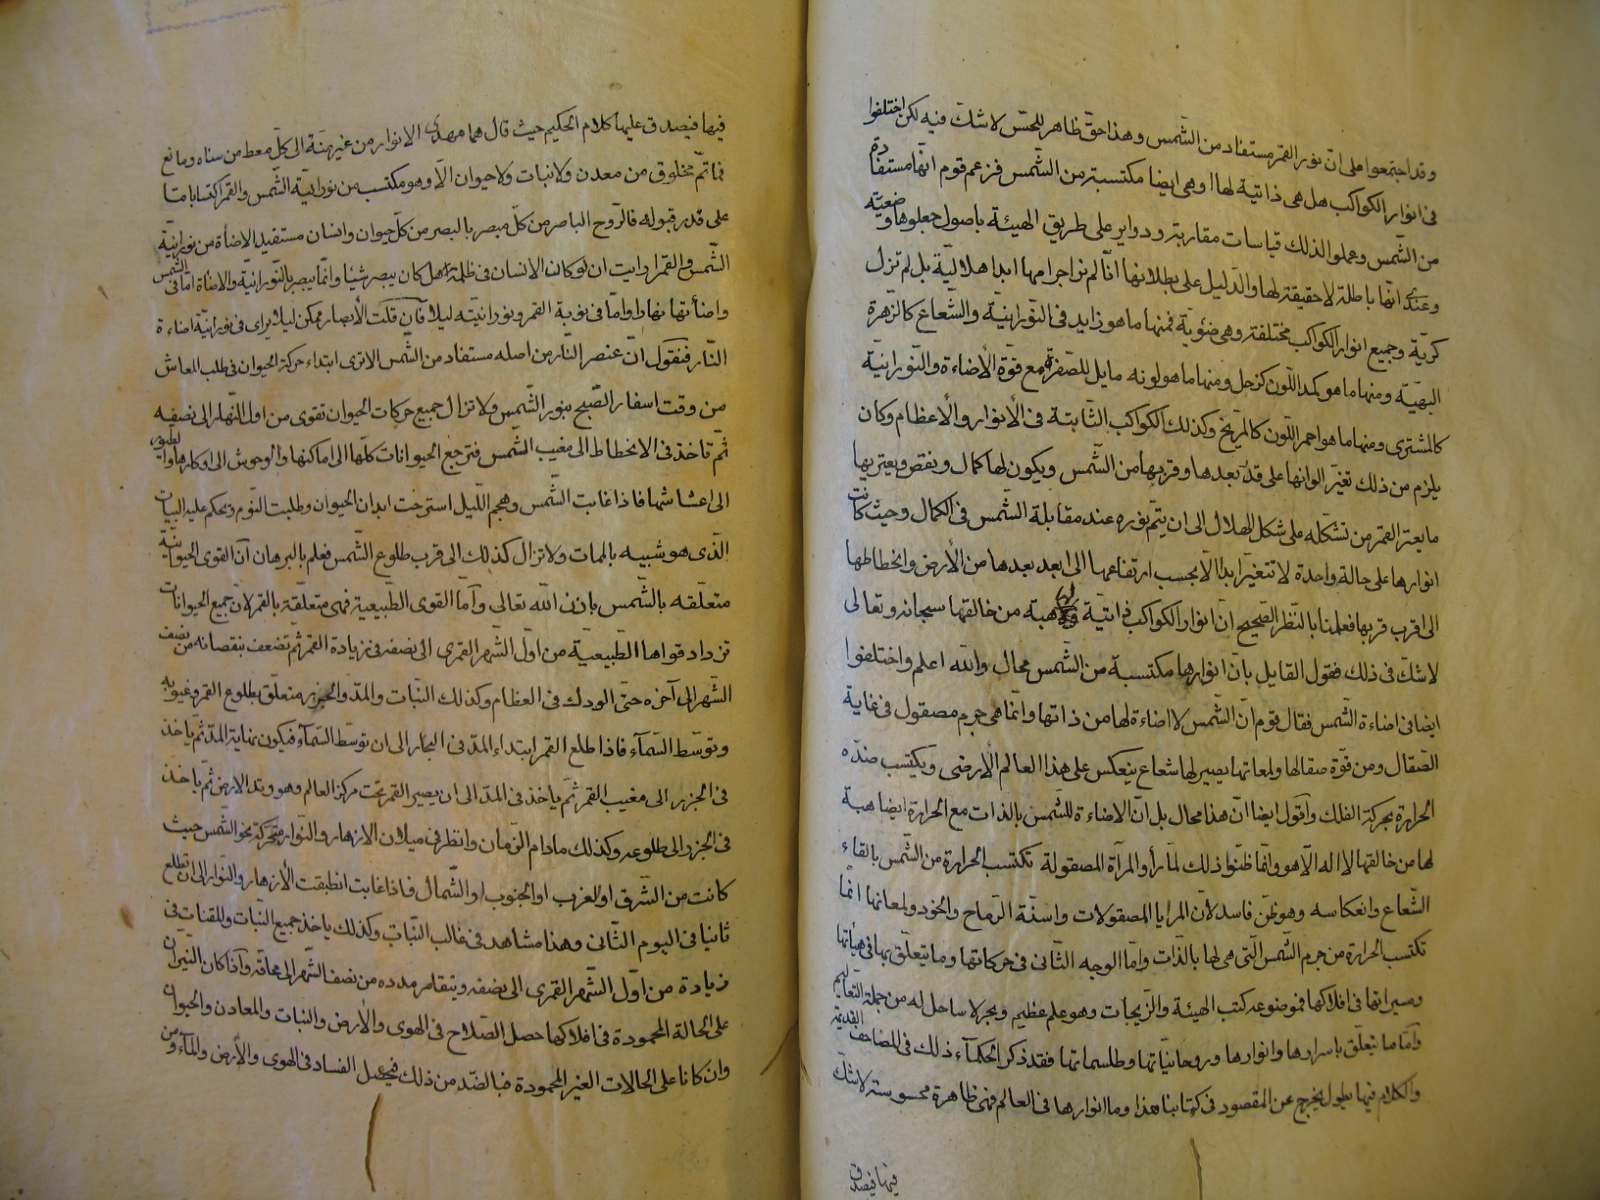 وقد اجتمعوا على ان نور القمر مستفاد من الشمس وهذا حق ظاهر للحس لا شك فيه لكن اختلفوا
فى انوار الكواكب هل هى ذاتية لها او هى ايضا مكتسبة من الشمس فزعم قوم انها مستفادة
من الشمس وعملوا لذلك قياسات مقاربة ودواير على طريق الهيئة باصول جعلوها وضعية
وعندى انها باطلة لا حقيقة لها والدليل على بطلانها انا لم نر اجرامها ابدا هلالية بل لم تزل
كرية وجميع انوار الكواكب مختلفة وهى ضوئية فمنها ما هو زايد فى النورانية والشعاع كالزهرة
البهية ومنها ما هو كمد اللون كزحل ومنها ما هو لونه مايل للصفرة مع قوة الأضاءة والنورانية
كالمشترى ومنها ما هو احمر اللون كالمريخ وكذلك الكواكب الثابتة فى الأنوار والأعظام وكان
يلزم من ذلك تغير الوانها على قدر بعدها وقربها من الشمس ويكون لها كمال ونقص ويعتريها
ما يعتر القمر من تشكله على شكل الهلال الى ان يتم نوره عند مقابلة الشمس فى الكمال وحيث كانت
انوارها على حالة واحدة لا تتغير ابدا الا بحسب ارتفاعها الى ابعد بعدها من الأرض وانحطاطها
الى اقرب قربها فعلمنا بالنظر الصحيح ان انوار الكواكب ذاتية لها هبة من خالقها سبحانه وتعالى
لا شك فى ذلك فقول القايل بان انوارها مكتسبة من الشمس محال والله اعلم واختلفوا
ايضا فى اضاءة الشمس فقال قوم ان الشمس لا اضاءة لها من ذاتها وانما هى جرم مصقول فى غاية
الصقال ومن قوة صقالها ولمعانها يصير لها شعاع ينعكس على هذا العالم الأرضى ويكتسب ضده
الحرارة بحركة الفلك واقول ايضا ان هذا محال بل ان الاضاءة للشمس بالذات مع الحرارة ايضا هبة
لها من خالقها لا اله الا هو وانما ظنوا ذلك لما رأوا المرآة المصقولة تكتسب الحرارة من الشمس بالقاء
الشعاع وانعكاسه وهو ظن فاسد لان المرايا المصقولات واسنة الرماح والخود ولمعانها انما
تكتسب الحرارة من جرم الشمس التى هى لها بالذات واما الوجه الثانى فى حركاتها وما يتعلق بها فى هيأتها
ومسيراتها فى افلاكها فموضوعه كتب الهيئة والزيجات وهو علم عظيم وبحر لا ساحل له من جملة التعاليم
واما ما يتعلق باسرارها وانوارها وروحانياتها وطلسماتها فقد ذكر الحكماء ذلك فى المصاحف القديمة
والكلام فيها يطول يخرج عن المقصود فى كتابنا هذا وما انوارها فى العالم فهى ظاهرة محسوسة لا شك
فيها فيصدق
فيها فيصدق عليها كلام الحكيم حيث قال هما مهدى الانوار من غير هنة الى كل معط من سناه ومانع
فما تم مخلوق من معدن ولا نبات ولا حيوان الا وهو مكتسب من نورانية الشمس والقمر اكتسابا ما
على قدر قبوله فالروح الباصر من كل مبصر بالبصر من كل حيوان وانسان مستفيد الاضأة من نورانية
الشمس والقمر ارايت ان لو كان الانسان فى ظلمة هل كان يبصر شيئا وانما يبصر بالنورانية والاضاة اما فى الشمس
واضأتها نهارا واما فى نوبة القمر ونورانيته ليلا فان قلت الأبصار ممكن ليلا يراى فى نورانية اضاءة
النار فنقول ان عنصر النار من اصله مستفاد من الشمس الا ترى ابتداء حركة الحيوان فى طلب المعاش
من وقت اسفار الصبح بنور الشمس ولا تزال جميع حركات الحيوان تقوى من اول النهار الى نصفه
ثم تاخذ فى الانحطاط الى مغيب الشمس فترجع الحيوانات كلها الى اماكنها والوحوش الى اوكارها والطيور
الى اعشاشها فاذا غابت الشمس وهجم الليل استرخت ابدان الحيوان وطلبت النوم ويحكم عليه البيات
الذى هو شبيه بالممات ولا تزال كذلك الى قرب طلوع الشمس فعلم بالبرهان ان القوى الحيوانية
متعلقه بالشمس باذن الله تعالى واما القوى الطبيعية فهى متعلقة بالقمر لان جميع الحيوانات
تزداد قواها الطبيعية من اول الشهر القمرى الى نصفه فى زيادة القمر ثم تضعف بنقصانه من نصف
الشهر الى آخره حتى الودك فى العظام وكذلك النبات والمد والجزر متعلق بطلوع القمر وغيوبه
وتوسط السماء فاذا طلع القمر ابتداء المد فى البحار الى ان توسط السماء فيكون نهاية المد ثم ياخذ
فى الجزر الى مغيب القمر ثم ياخذ فى المد الى ان يصير القمر تحت مركز العالم وهو وتد الارض ثم ياخذ
فى الجزر الى طلوعه وكذلك مادام الزمان وانظر فى ميلان الازهار والنوار متحركة نحو الشمس حيث
كانت من الشرق او الغرب او الجنوب او الشمال فاذا غابت انطبقت الأزهار والنوار الى ان تطلع
ثانيا فى اليوم الثانى وهذا مشاهد فى غالب النبات وكذلك ياخذ جميع النبات والمقتات فى
زيادة من اول الشهر القمرى الى نصفه ويتقاصر مدده من نصف الشهر الى محاقه واذا كان النيران
على الحالة المحمودة فى افلاكها حصل الصلاح فى الهوى والأرض والنبات والمعادن والحيوان
وان كانا على الحالات الغير المحمودة فبالضد من ذلك فيحصل الفساد فى الهوى والأرض والماء ومن